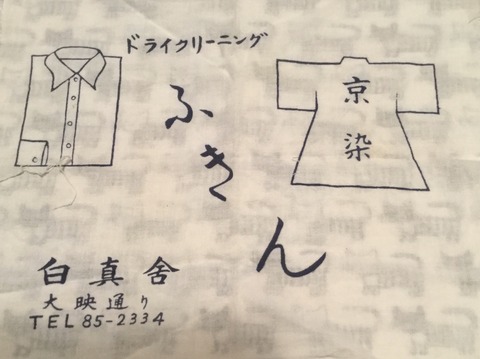 ドライクリーニング
ふきん
京染
白真舍
大映通り
TEL 85-2334